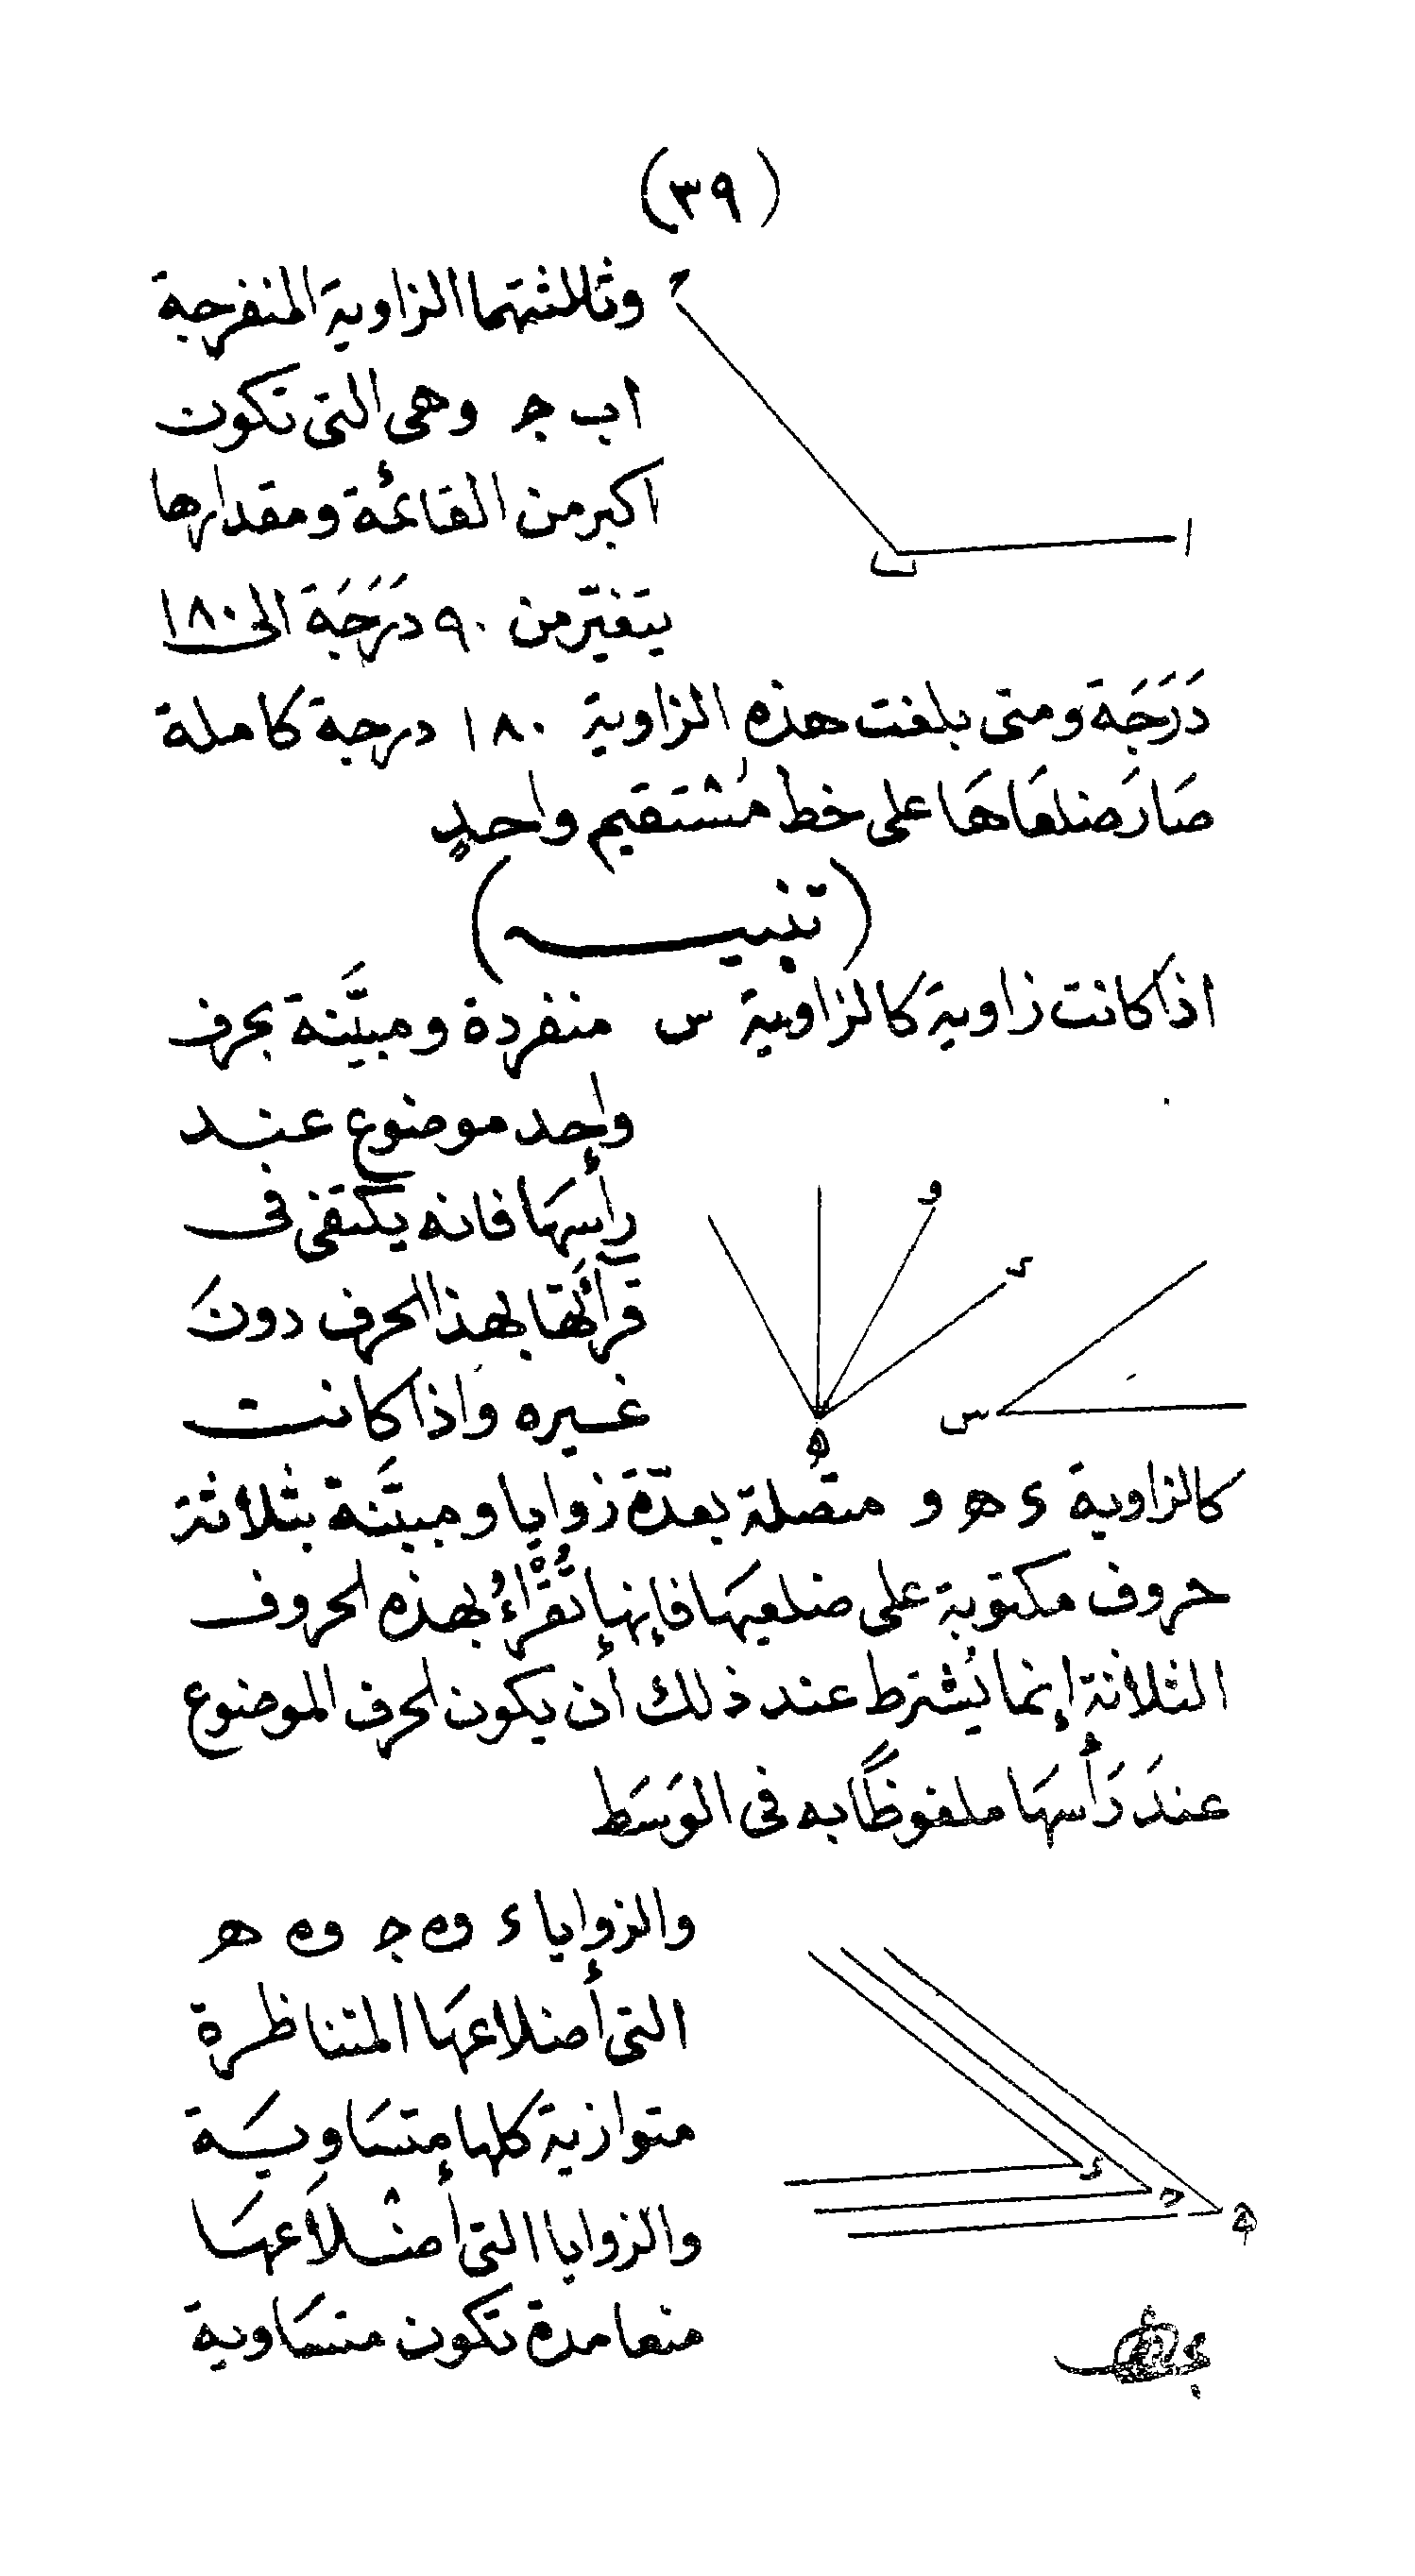 (٣٩)
وثالثتهما الزاوية المنفرجة
ا ب ج وهى التى تكون
اكبر من القائمة ومقدارها
يتغيّر من ٩٠ دَرَجَة الى ١٨٠
دَرَجَة ومتى بلغت هذه الزاوية ١٨٠ درجة كاملة
صَارَ ضلعَاهَا على خط مُسْتقيم واحدٍ
(تنبيه)
اذا كانت زاوية كالزاوية س منفردة ومبيَّنة بحرف
واحد موضوع عند
رأسهَا فانه يكتفى فى
قرآئتها بهذا الحرف دونَ
غيره وَاذا كانت
كالزاوية ء ه و متصلة بعدّة زوايا ومبيَّنة بثلاثة
حروف مكتوبة على ضلعيهَا فإنها تُقْرَاءُ بهذه الحروف
الثلاثة إنما يُشترط عند ذلك أن يكون الحرف الموضوع
عندَ رَأسهَا ملفوظًا به فى الوَسَط
والزوايا ء و ه ج و ه ه
التى أضلاعهَا المتناظرة
متوازية كلها متسَاويَة
والزوايا التى أضْلاَعهَا
متعامدة تكون متسَاوية
ح
ا
ب
و
ء
س
ه
ء
ح
ه